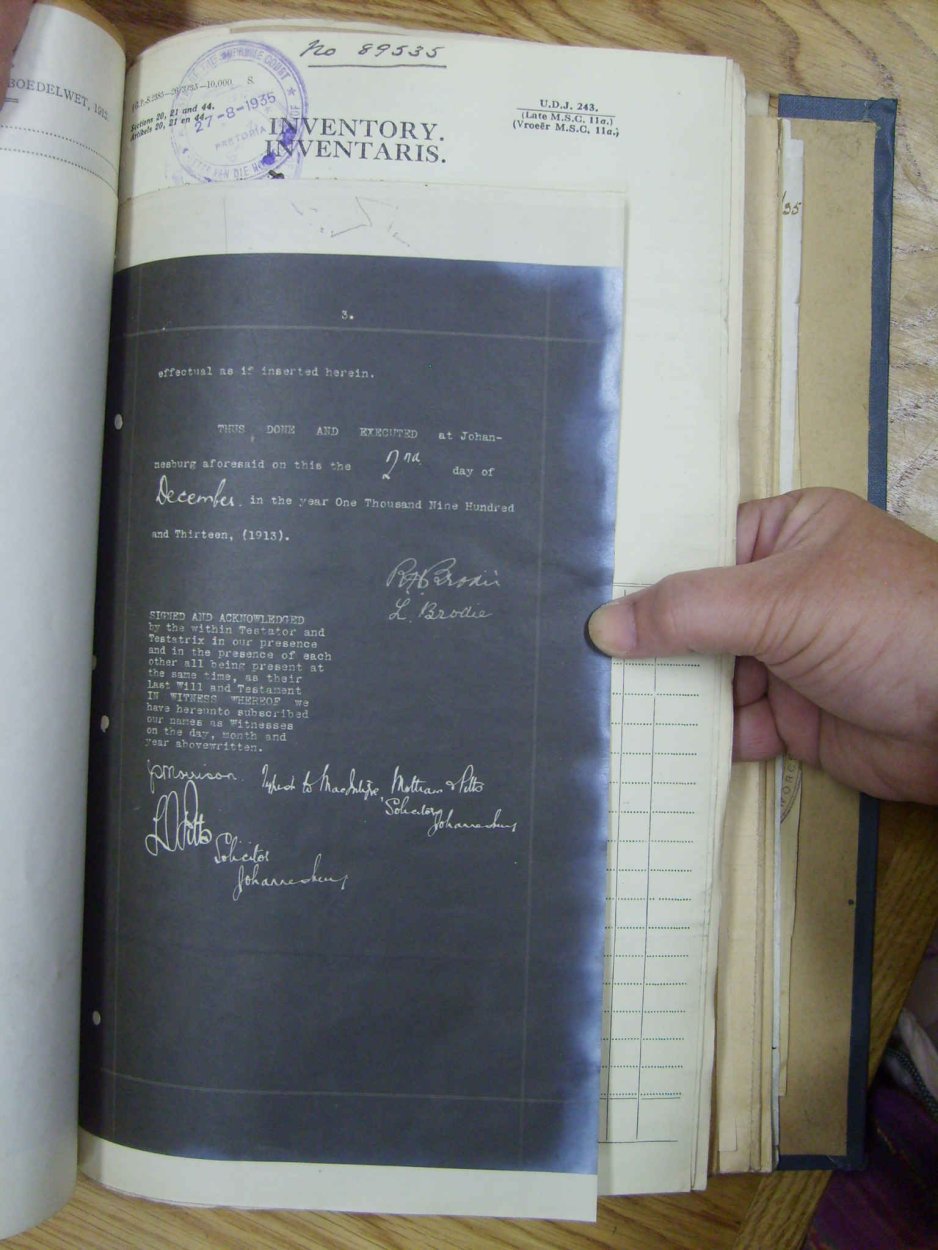 BOEDELWET, 
No 89535
Sections 20, 21 and 44.
Artikels 20, 21 en 44.
27-8-1935
PRETORIA
INVENTORY.
INVENTARIS.
U.D.J. 243.
(Late M.S.C. 11a.)
(Vroeër M.S.C. 11a.)
/35
3.
effectual as if inserted herein.
THUS DONE AND EXECUTED at Johan-
nesburg aforesaid on this the 2nd day of
December in the year One Thousand Nine Hundred
and Thirteen, (1913).
R H Brodie
L. Brodie
SIGNED AND ACKNOWLEDGED
by the within Testator and
Testatrix in our presence
and in the presence of each
other all being present at
the same time, as their
Last Will and Testament
IN WITNESS WHEREOF we
have hereunto subscribed
our names as Witnesses
on the day, month and
year abovewritten.
JP Morrison
Typist to MacIntyre Mottram & Pitts
Solicitors
Johannesburg
Pitts
Solicitor
Johannesburg